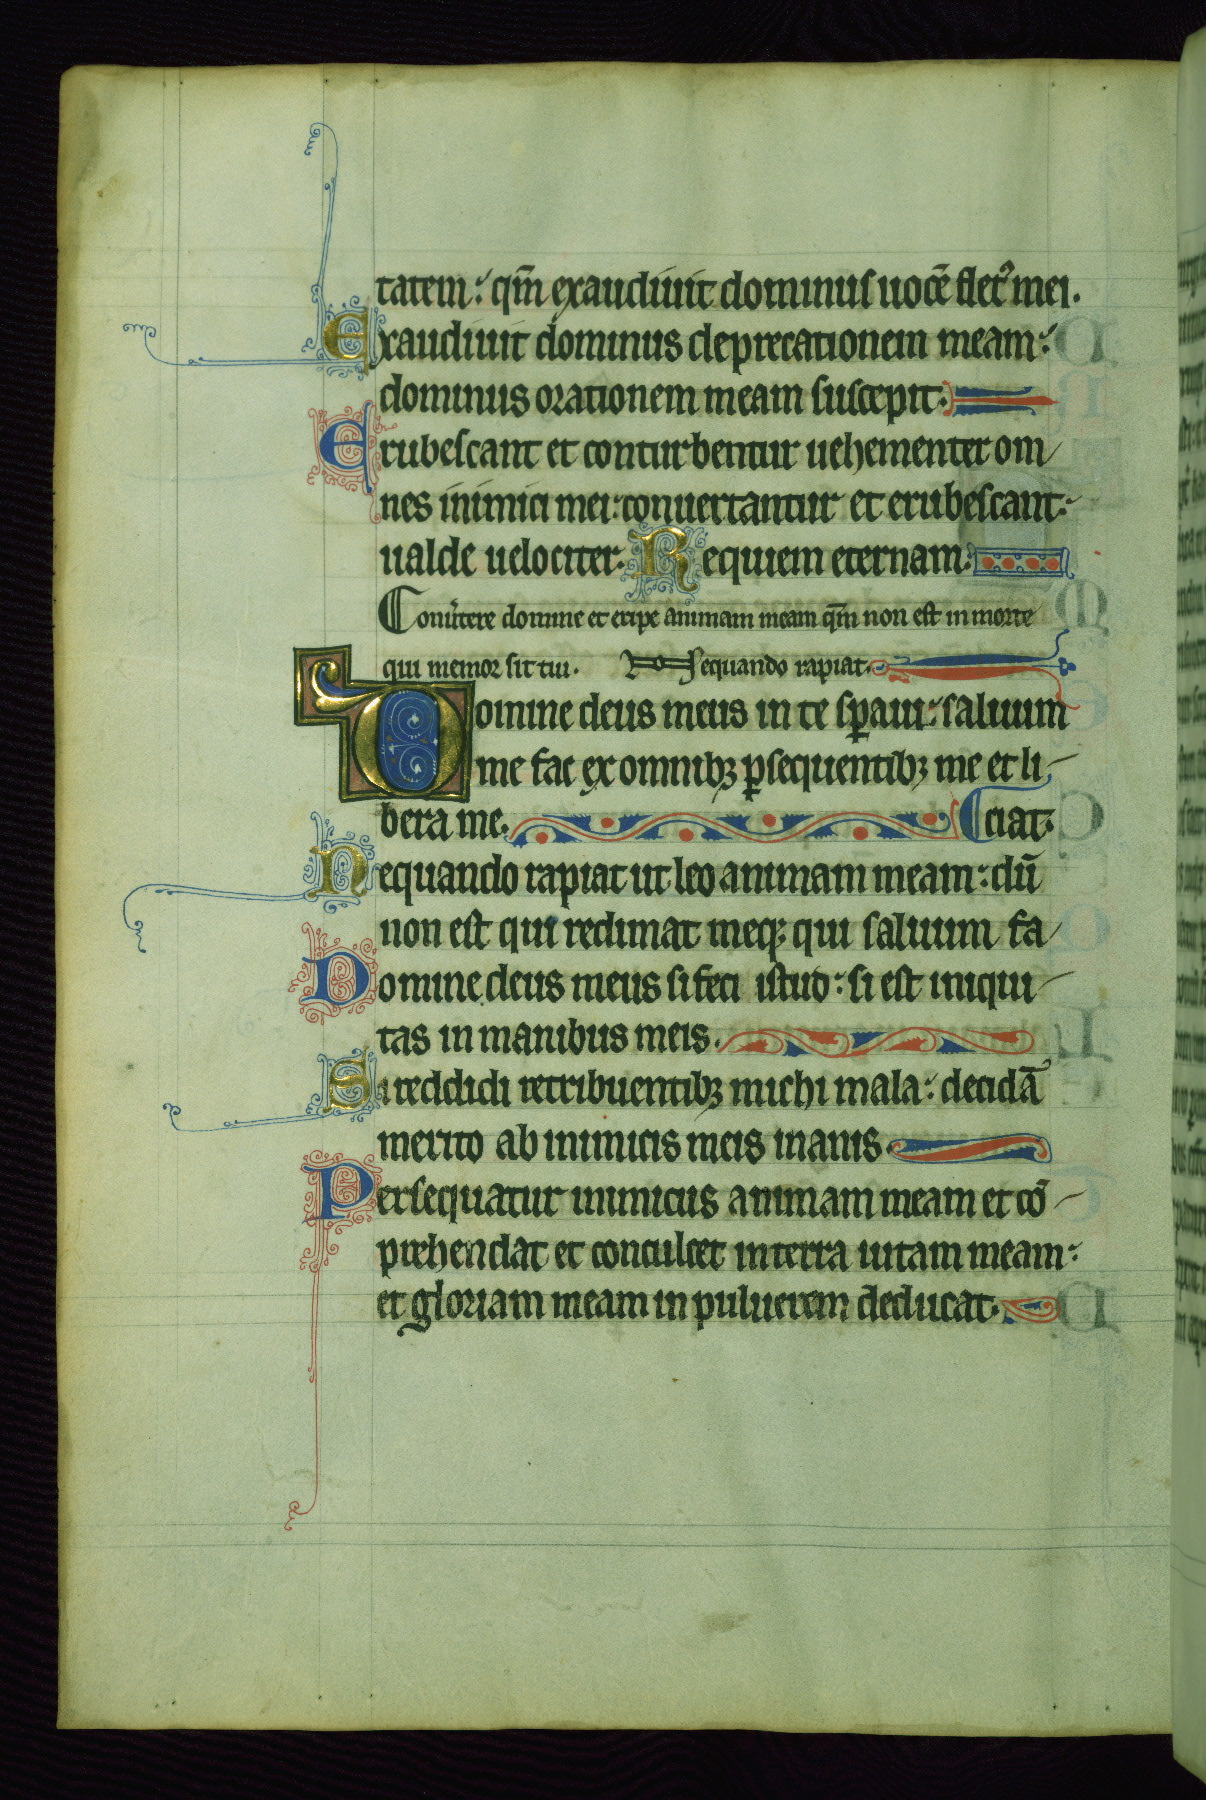 tatem: qm̄ exaudiuit dominus uocē flet᷒ mei.
Exaudiuit dominus deprecationem meam:
dominus orationem meam suscepit.
Erubescant et conturbentur uehementer om
nes inimici mei: conuertantur et erubescant
ualde uelociter. Requiem eternam.
Conu̾tere domine et eripe animam meam qm̄ non est in morte
qui memor sit tui. Nequando rapiat.
Domine deus meus in te sꝑaui: saluum
me fac ex omnibꝫ ꝑsequentibꝫ me et li
bera me. ciat.
Nequando rapiat ut leo animam meam: dū
non est qui redimat neqꝫ qui saluum fa
Domine deus meus si feci istud: si est iniqui
tas in manibus meis.
Si reddidi retribuentibꝫ michi mala: decidā
merito ab inimicis meis inanis.
Persequatur inimicus animam meam et cō
prehendat et conculcet in terra uitam meam:
et gloriam meam in puluerem deducat.